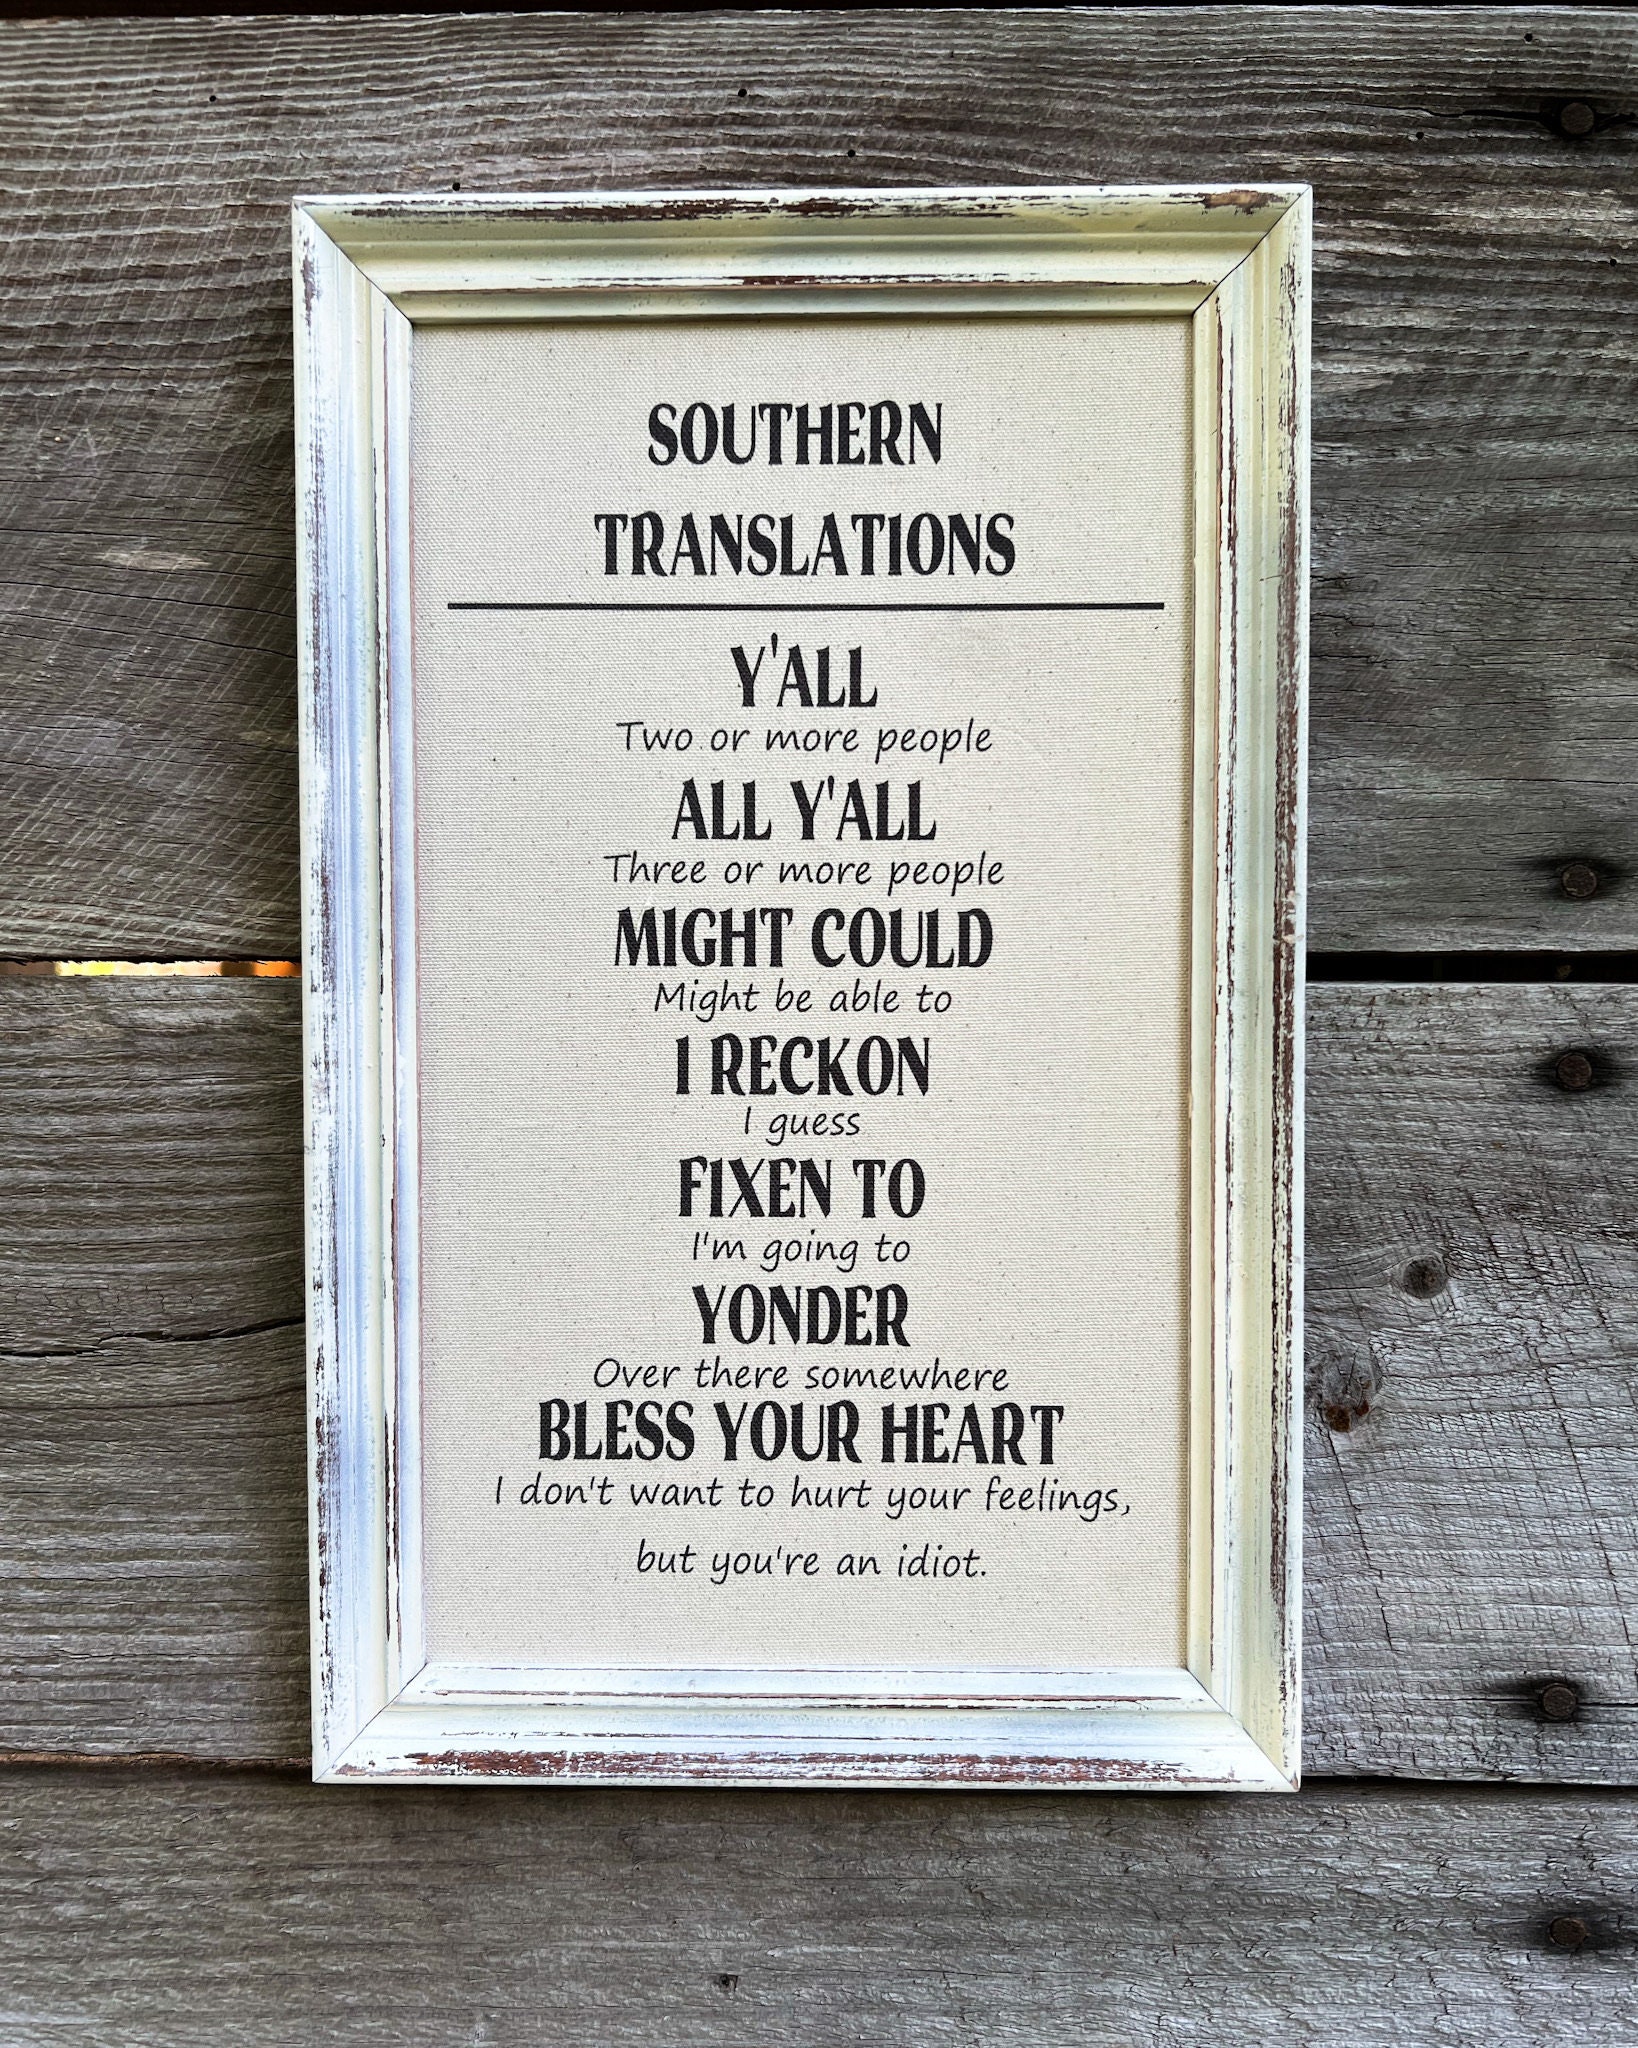 SOUTHERN
TRANSLATIONS
Y'ALL
Two or more people
ALL Y'ALL
Three or more people
MIGHT COULD
Might be able to
I RECKON
I guess
FIXEN TO
I'm going to
YONDER
Over there somewhere
BLESS YOUR HEART
I don't want to hurt your feelings,
but you're an idiot.